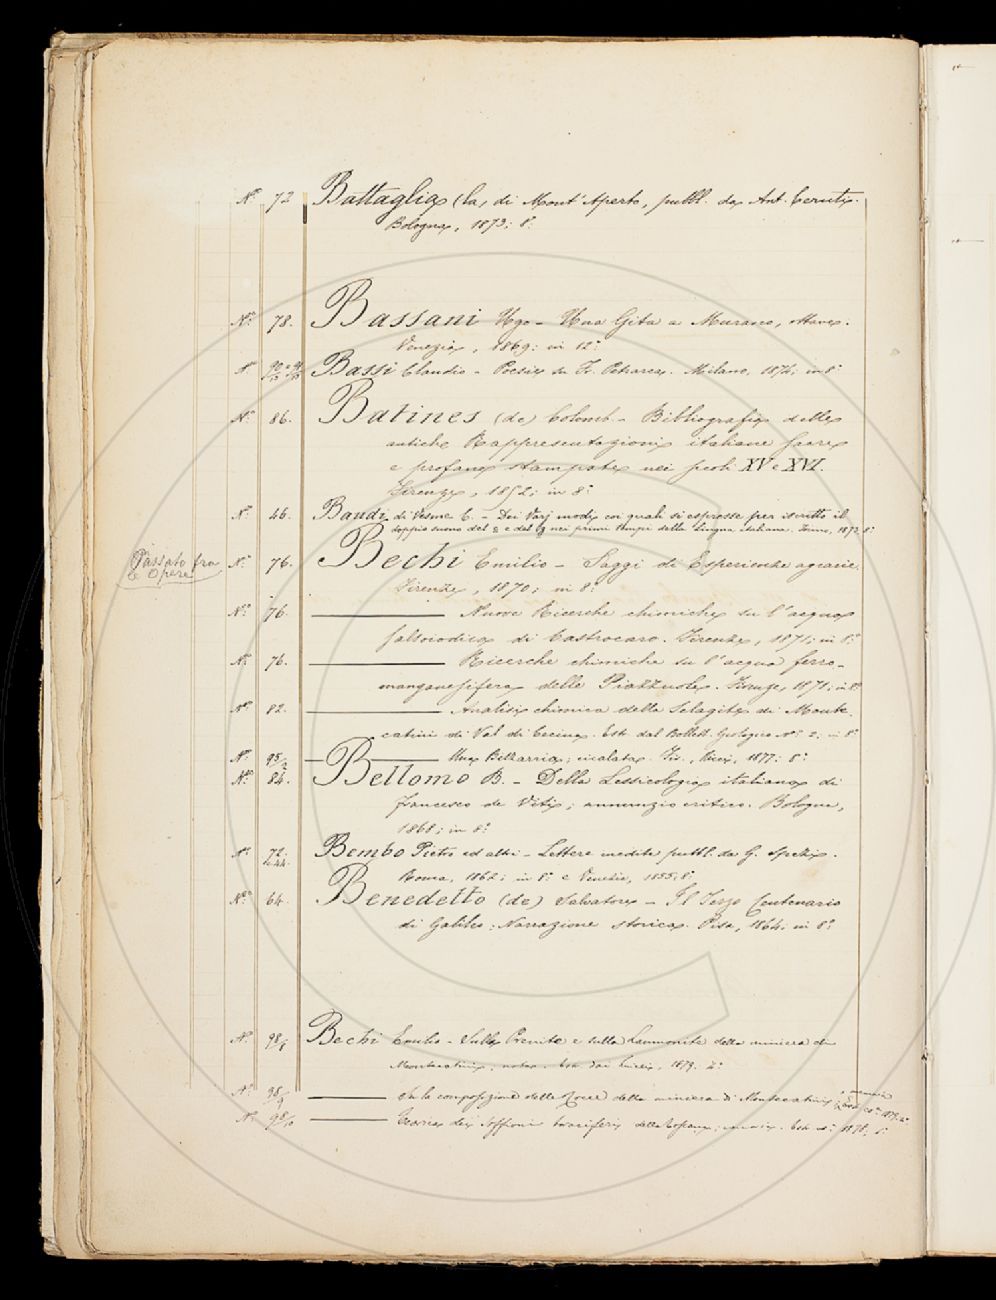 N.° 72 Battaglia (la, di Mont'Aperto, pubbl. da Ant. Ceruti.
Bologna, 1873; 8.°
N.° 78. Bassani Ugo - Una Gita a Murano, ottave.
Venezia, 1869: in 12.°
N.° Bassi Claudio - Poesia su Fr. Petrarca. Milano, 1874; in 8.°
N.° 86. Batines (de) Colomb. - Bibliografia delle
antiche Rappresentazioni italiane sacre
e profane stampate nei secoli XV e XVI.
Firenze, 1852; in 8.°
N.° 46. Baudi di Vesme C. - Dei Varj modi coi quali si espresse per iscritto il
doppio suono del c e del g nei primi tempi della lingua italiana. Torino, 1872, 8.°
Passato fra
le Opere
N.° 76. Bechi Emilio - Saggi di Esperienze agrarie.
Firenze, 1870; in 8.°
N.° 76. ——— Nuove Ricerche chimiche su l'acqua
salsoiodica di Castrocaro. Firenze, 1871; in 8.°
N.° 76. ——— Ricerche chimiche su l'acqua ferro-
manganesifera delle Piazzuole. Firenze, 1871; in 8.°
N.° 82. ——— Analisi chimica della Selagite di Monte-
catini di Val di Cecina. Estr. dal Bollett. Geologico N.° 2; in 8.°
N.° 95/2 ——— Una Bizzarria; incalata. Fir., Ricci, 1877; 8.°
N.° 84. Bellomo B. - Della Lessicologia italiana di
Francesco de Vitis; annunzio critico. Bologna,
1868; in 8.°
N.° 72.-44. Bembo Pietro ed altri - Lettere inedite pubbl. da G. Spezi.
Roma, 1862; in 8.° e Venezia, 1855; 8.°
N.° 64. Benedetto (de) Salvatore - Il Terzo Centenario
di Galileo: Narrazione storica. Pisa, 1864; in 8.°
N.° 98/8 Bechi Emilio - Sulla Prenite e sulla Laumonite della miniera di
Montecatini; nota. Estr. dai Lincei, 1879. 4.°
N.° 98/9 ——— Su la composizione delle Rocce della miniera di Montecatini; memoria
Estr. 1879. 4.°
N.° 98/10 ——— Teoria dei soffioni boraciferi della Toscana; memoria. Estr. 1878, 8.°